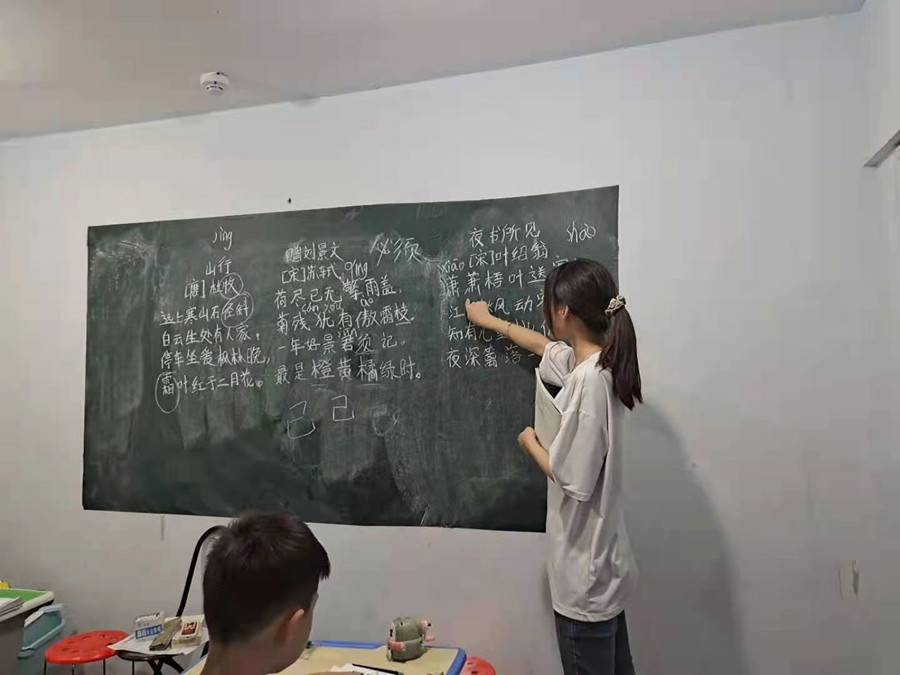 jìng
山行
[唐]杜牧
远上寒山石径斜
白云生处有人家，
停车坐爱枫林晚，
霜叶红于二月花。
赠刘景文
[宋]苏轼
必须
qíng
荷尽已无擎雨盖，
cán yóu ào
菊残犹有傲霜枝。
年好景君须记，
最是橙黄橘绿时。
己 己
夜书所见
xiāo [宋]叶绍翁
萧萧梧叶送
江 风动
知有
夜深篱落